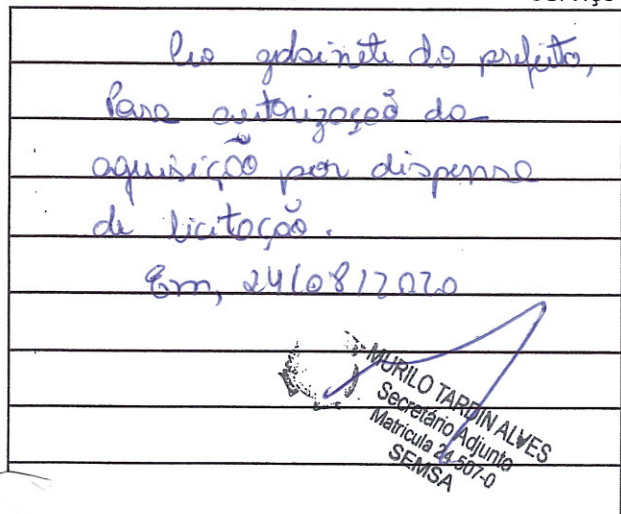 serviço
Ao gabinete do prefeito,
Para autorização da
aquisição por dispensa
de licitação.
Em, 24/08/2020
MURILO TARDIN ALVES
Secretário Adjunto
Matricula 24.507-0
SEMSA